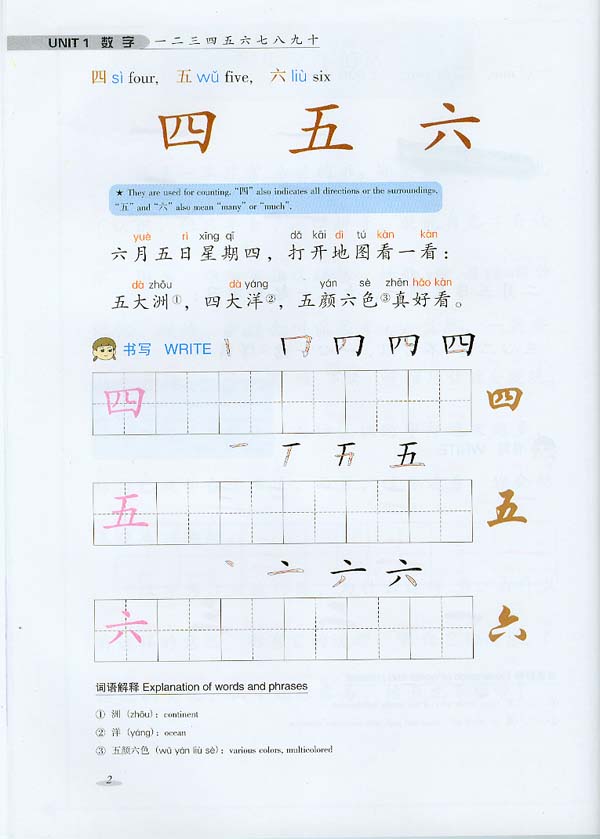 UNIT 1 数字 一二三四五六七八九十
四 sì four, 五 wǔ five, 六 liù six
四 五 六
★ They are used for counting. “四” also indicates all directions or the surroundings.
“五” and “六” also mean “many” or “much”.
yuè rì xīng qī dǎ kāi dì tú kàn kàn
六月五日星期四，打开地图看一看：
dà zhōu dà yáng yán sè zhēn hǎo kàn
五大洲①，四大洋②，五颜六色③真好看。
书写 WRITE 四
四 四
五
五 五
六
六 六
词语解释 Explanation of words and phrases
① 洲 (zhōu)：continent
② 洋 (yáng)：ocean
③ 五颜六色 (wǔ yán liù sè)：various colors, multicolored
2